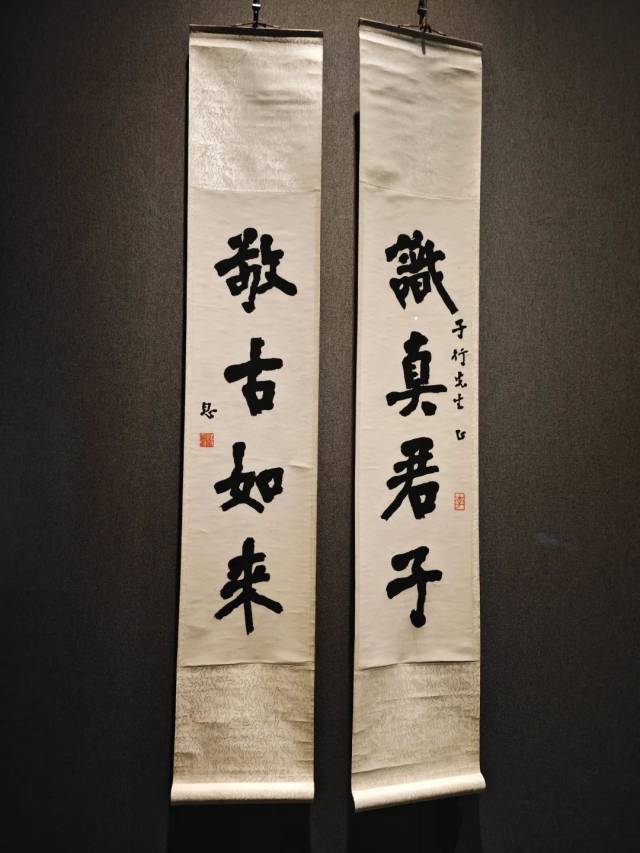 識真君子
子行先生正
敬古如来